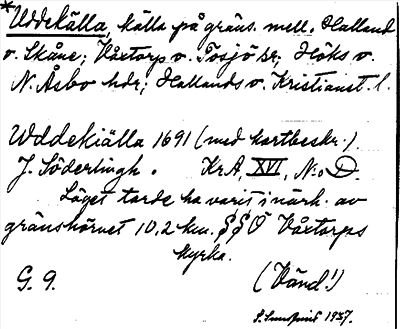 *Uddekälla, källa på gräns. mell. Halland
o. Skåne; Våxtorp o. Tosjö sr; Höks o.
N. Åsbo hdr; Hallands o. Kristianst. l.
Uddekiälla 1691 (med kartbeskr.).
J. Söderlingh. Kr A, XVI, N:o D.
Läget torde ha varit i närh. av
gränshörnet 10,2 km. SSÖ Våxtorps
kyrka.
G. 9. (Vänd!)
1937.